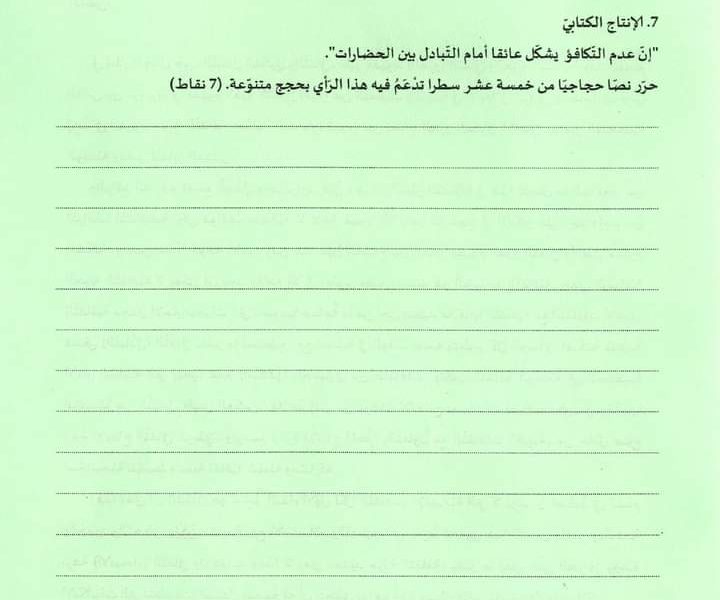 7. الإنتاج الكتابيّ
"إنّ عدم التّكافؤ يشكّل عائقا أمام التّبادل بين الحضارات".
حرّر نصّا حجاجيّا من خمسة عشر سطرا تدْعَمُ فيه هذا الرّأي بحجج متنوّعة. (7 نقاط)